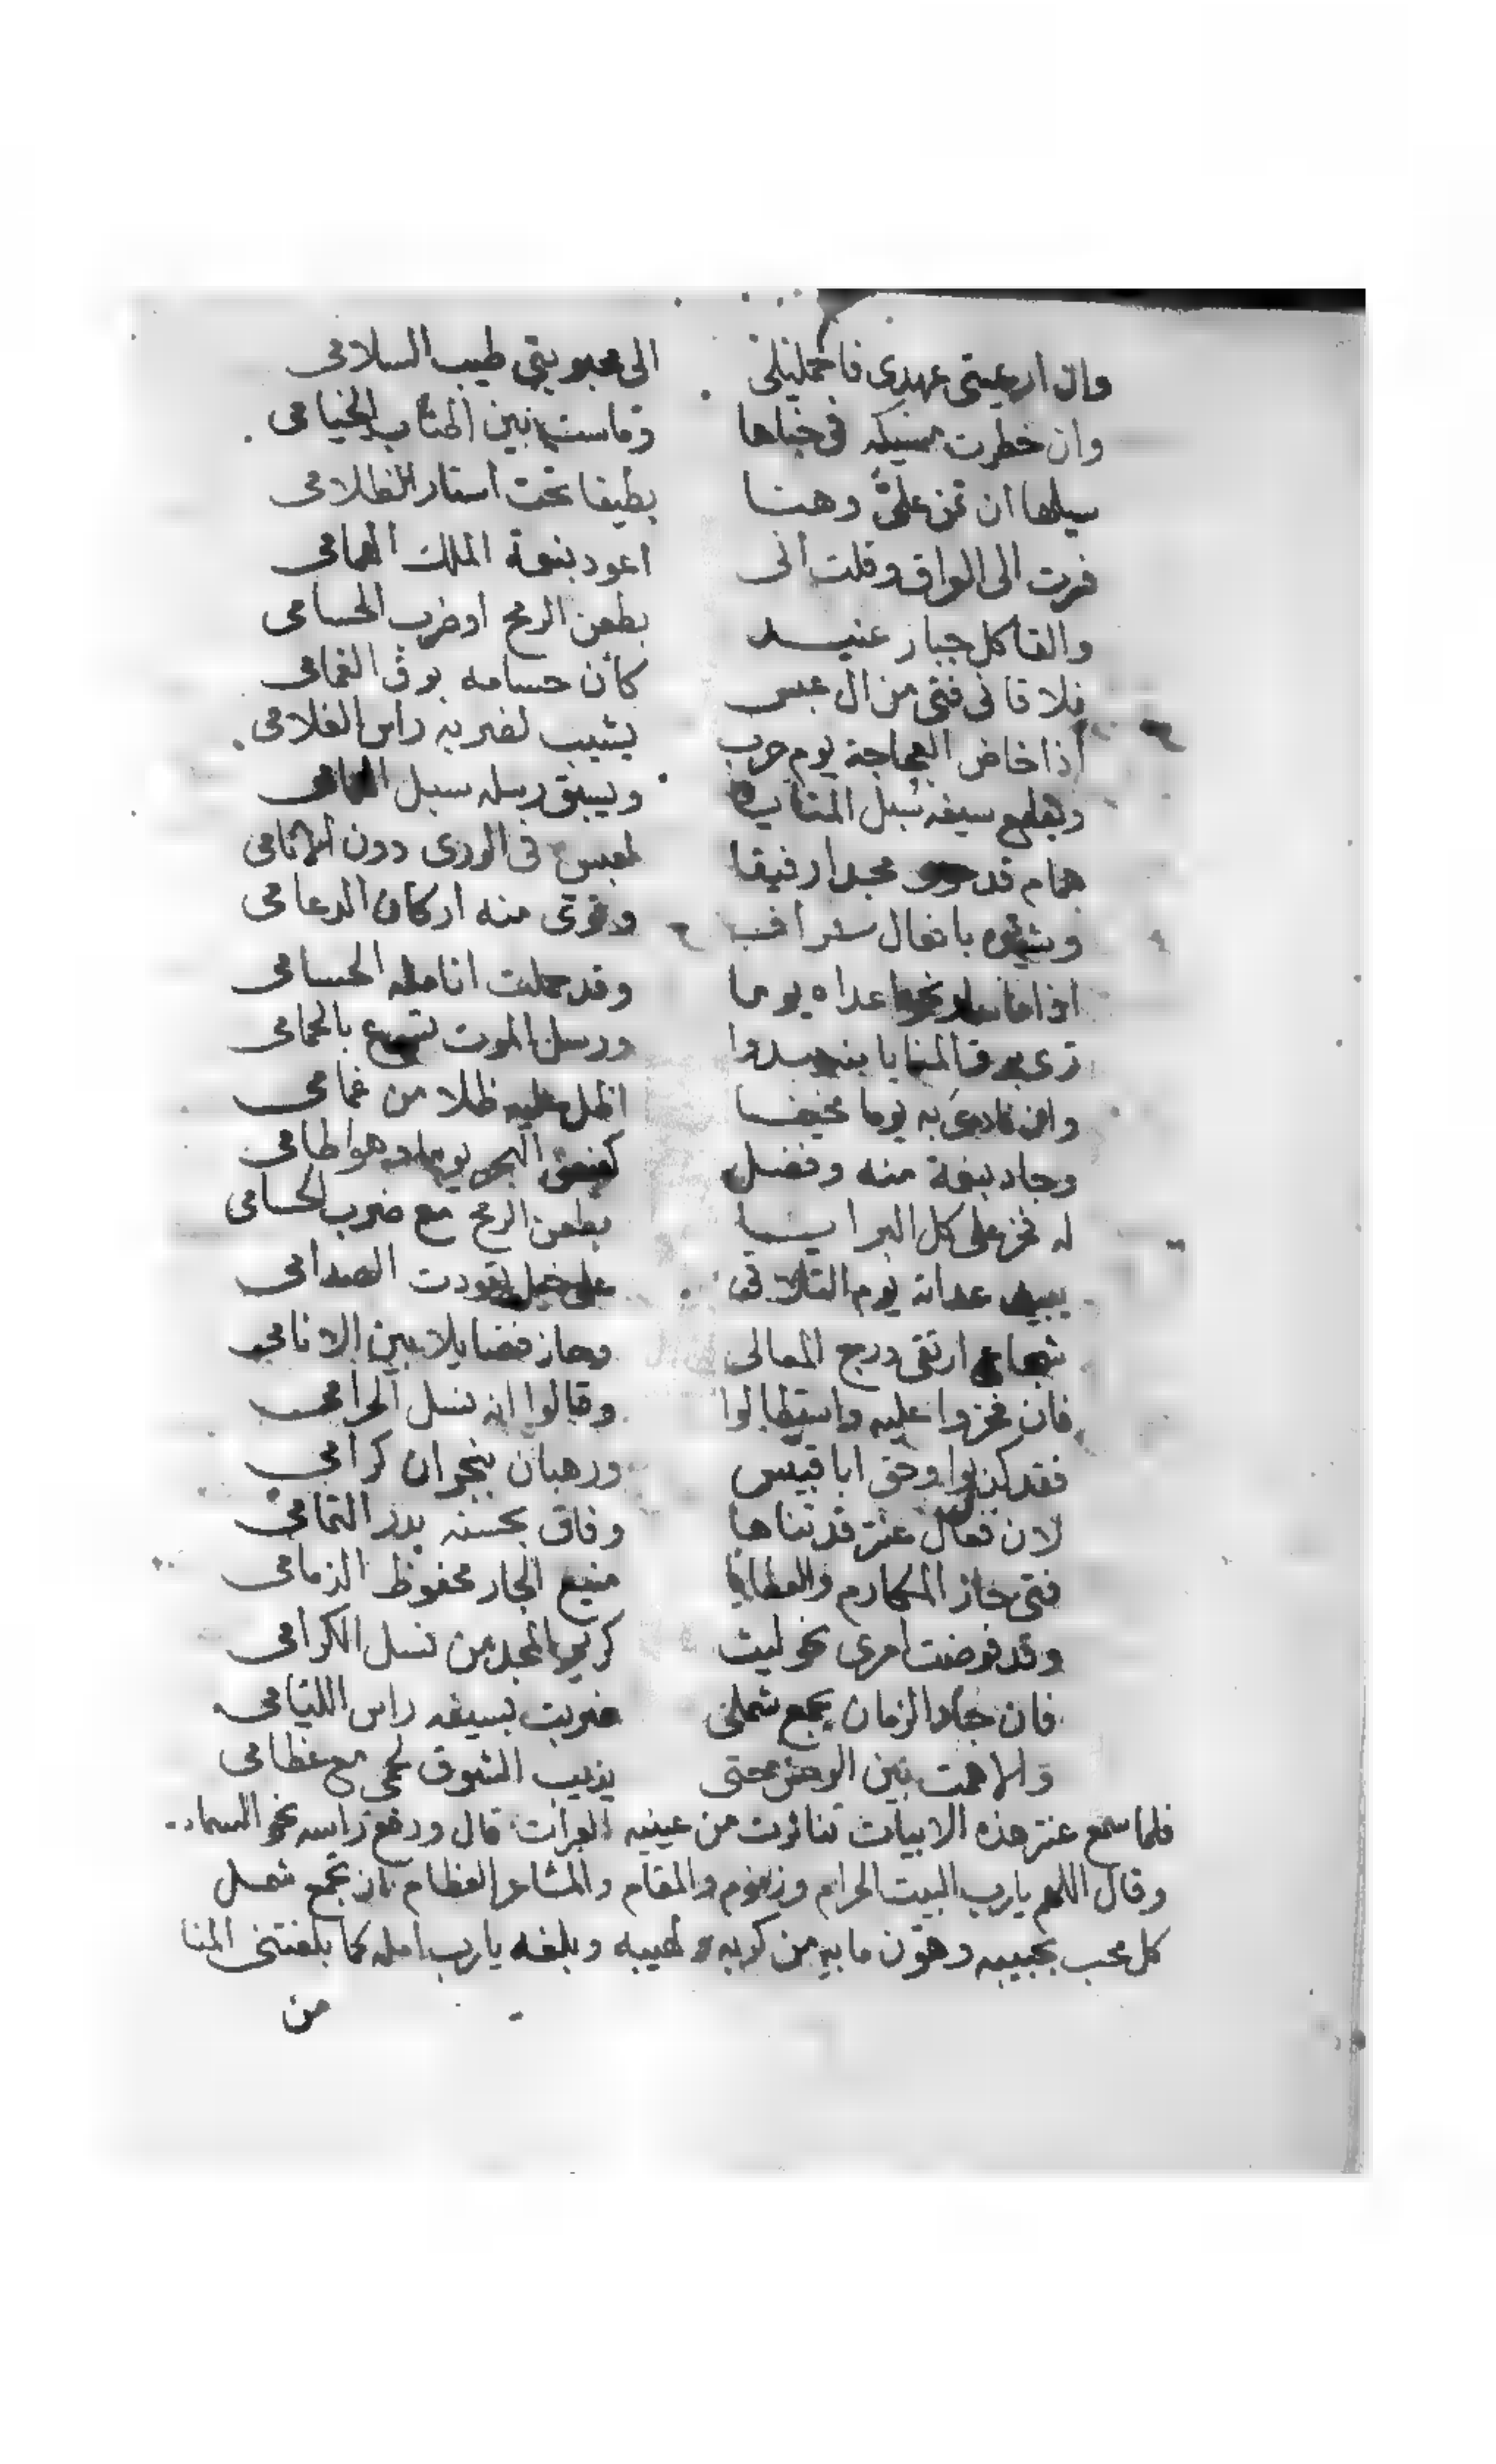 وان ارعيتى عهدى فاحمليلى الى محبوبتي طيب السلامى
وان خطرت مسيكه فى خباها وماست بين الخيامى
سيلها ان تمن على وهنا بطيفا تحت استار الظلامى
فرت الى العراق وقلت انى اعود بنوقة الملك الهمامى
والقا كل جبار عنيد بطعن الرمح او ضرب الحسامى
فلاقانى فتى من ال عبس كأن حسامه برق الغمامى
اذا خاض العجاجة يوم حرب يشيب لضربه راس الغلامى
سيفه سبل المنايا ويسبق رسله سبل
همام قد حوى مجدا رفيقا لعبس فى الورى دون الانامى
بافعال منه اركان الدعامى
اعداه يوما وقد حملت انامله الحسامى
ترى برق المنايا ورسل الموت بالحمامى
وان نادى به يوما مخيفا اظل عليه ظلا من غمامى
وجاد بنعمة منه وفضل البحر يوما وهو طامى
له فخر على كل البرايا بطعن الرمح مع ضرب الحسامى
يبيد عداته يوم التلاقى على خيل تعودت الصدامى
شجاع ارتقى درج المعالى وحاز فضايلا بين الانامى
فان فخروا عليه واستطالوا وقالوا انه نسل الحرامى
فقد كذبوا وحق ابا قبيس ورهبان بنجران كرامى
لان فعال عنتر قد تناها وفاق بحسنه بدر التمامى
فتى حاز المكارم والعطايا منيع الجار محفوظ الذمامى
وقد فوضت امرى نحو ليث كريم المجد من نسل الكرامى
فان جاد الزمان بجمع شملى ضربت بسيفه راس اللئيامى
والا همت بين الوحش حتى يذيب الشوق لحمى مع عظامى
فلما سمع عنتر هذه الابيات تناثرت من عينيه العبرات قال ورفع راسه نحو السماء
وقال اللهم يارب البيت الحرام وزمزم والمقام والمشاعر العظام بان تجمع شمل
كل محب بحبيبه وهون ما به من كربه ولهيبه وبلغه يارب امله كما بلغتنى المنا
من